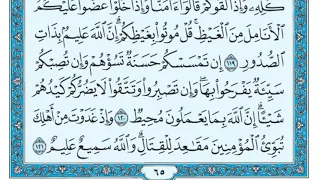 كُلِّهِۦ وَإِذَا لَقُوكُمْ قَالُوٓا۟ ءَامَنَّا وَإِذَا خَلَوْا۟ عَضُّوا۟ عَلَيْكُمُ
ٱلْأَنَامِلَ مِنَ ٱلْغَيْظِ ۚ قُلْ مُوتُوا۟ بِغَيْظِكُمْ ۗ إِنَّ ٱللَّهَ عَلِيمٌۢ بِذَاتِ
ٱلصُّدُورِ ١١٩ إِن تَمْسَسْكُمْ حَسَنَةٌ تَسُؤْهُمْ وَإِن تُصِبْكُمْ
سَيِّئَةٌ يَفْرَحُوا۟ بِهَا ۖ وَإِن تَصْبِرُوا۟ وَتَتَّقُوا۟ لَا يَضُرُّكُمْ كَيْدُهُمْ
شَيْـًٔا ۗ إِنَّ ٱللَّهَ بِمَا يَعْمَلُونَ مُحِيطٌ ١٢٠ وَإِذْ غَدَوْتَ مِنْ أَهْلِكَ
تُبَوِّئُ ٱلْمُؤْمِنِينَ مَقَـٰعِدَ لِلْقِتَالِ ۗ وَٱللَّهُ سَمِيعٌ عَلِيمٌ ١٢١
٦٥